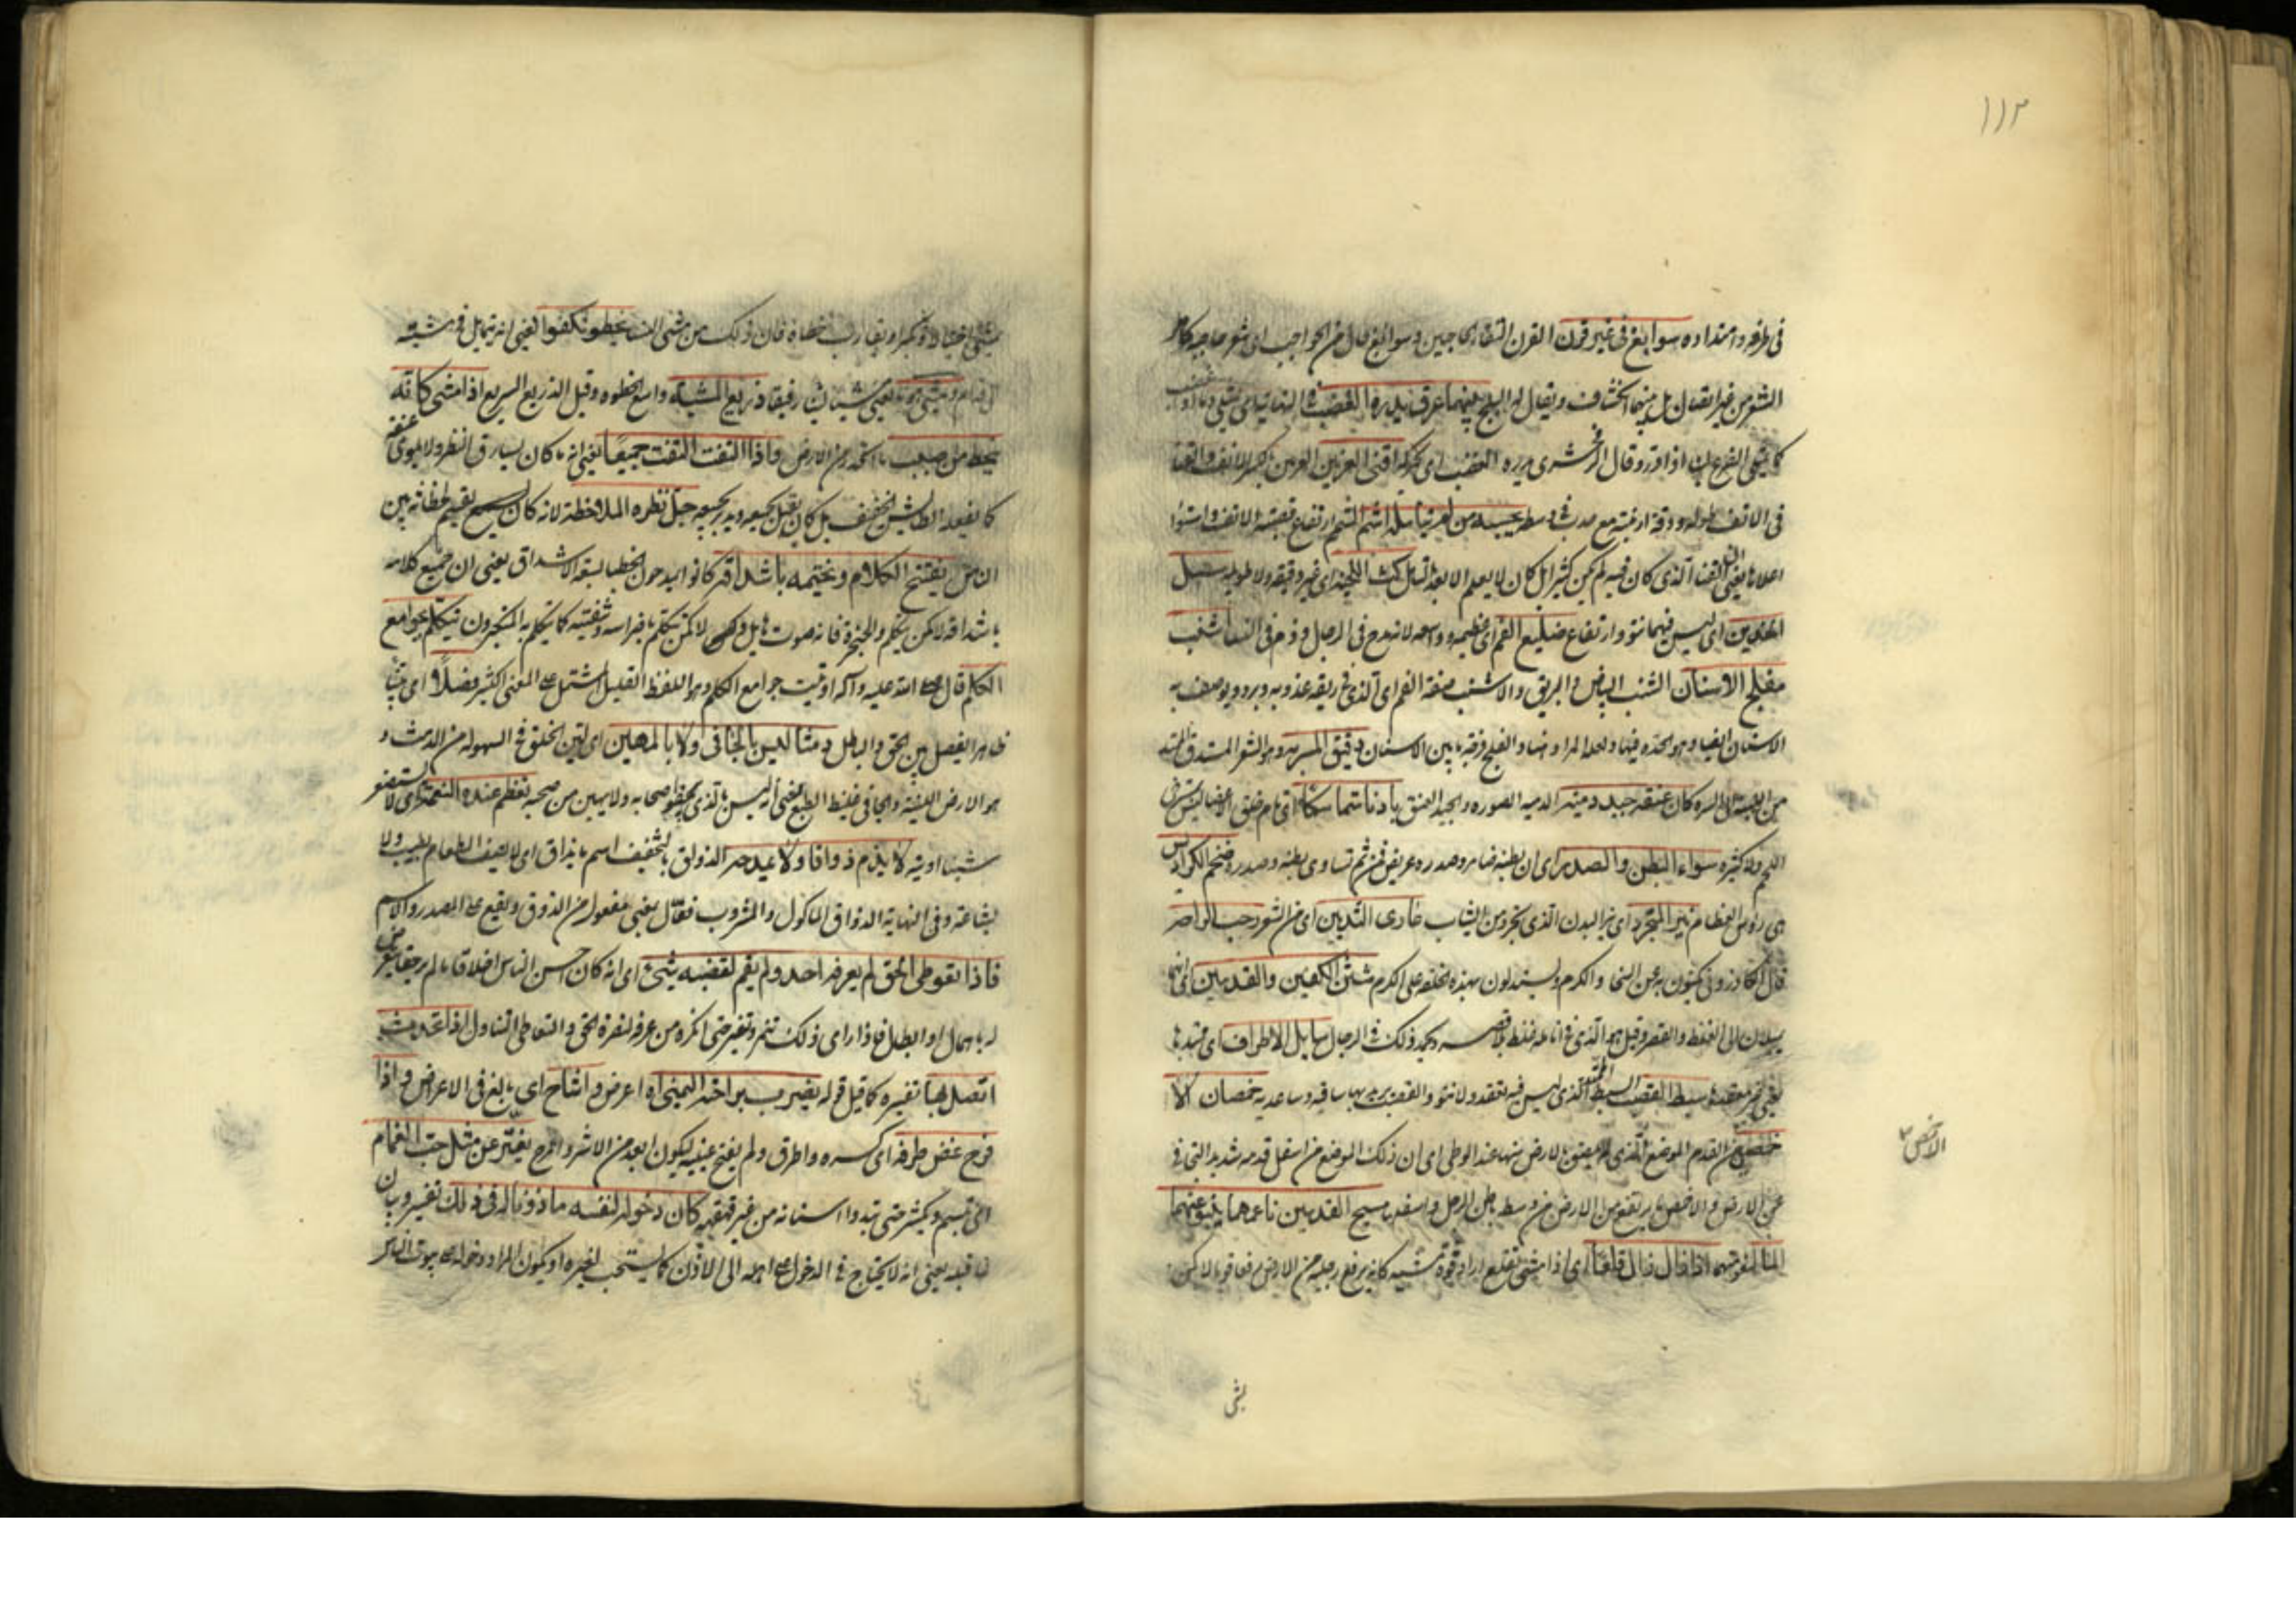 ١١٣
في طرفه وامتداده سوابغ في غير قرن القرن التقاء الحاجبين وسوابغ حال من الحواجب اى شعر حاجبه كامل
الشعر من غير اتصال بل بينهما ويقال له البلج بينهما عرق يدره الغضب في النهاية اى يمتلي دما اذا غضب
كما يمتلي الضرع لبنا اذا در وقال الزمخشري يدره الغضب اى يحركه اقنى العرنين العرنين الانف والقنا
في الانف طوله ودقة ارنبته مع حدب في وسطه يحسبه من لم يتأمله اشم الشمم ارتفاع قصبة الانف واستواء
اعلاها يعنى ان القنا الذي كان فيه لم يكن كثيرا بل كان لا يعلم الا بعد التأمل كث اللحية اى غير دقيقة ولا طويلة سهل
الخدين اى ليس فيهما نتو وارتفاع ضليع الفم اى عظيمه وواسعه لانه مدح في الرجال وذم في النساء اشنب
مفلج الاسنان الشنب البياض والبريق والاشنب صفة الفم اى الذي في ريقه عذوبة وبرد ويوصف به
الاسنان ايضا وهو الحدة فيها ولعله المراد هنا والفلج فرجة ما بين الاسنان دقيق المسربه وهو الشعر المستدق الممتد
من اللبة الى السرة كان عنقه جيد دمية الدمية الصورة والجيد العنق بادنا متماسكا اى تام خلق الاعضاء ليس
اللحم ولا كثيره سواء البطن والصدر اى ان بطنه ضامر وصدره عريض فمن ثم تساوى بطنه وصدره ضخم الكراديس
هي رؤس العظام نير المتجرد اى نير البدن الذي تجرد من الثياب عاري الثديين اى من الشعر رحب الراحة
قال الكازروني يكنون به عن السخا والكرم ويستدلون بهذه الخلقة على الكرم شثن الكفين والقدمين اى انهما
يميلان الى الغلظ والقصر وقيل هو الذي في انامله غلظ بلا قصر ويحمد ذلك في الرجال سايل الاطراف اى ممتدها
يعنى غير منعقدة سبط القصب السبط الممتد الذي ليس فيه تعقد ولا نتو والقصب يريد بها ساقيه وساعديه خمصان الا
خمصين من القدم الموضع الذي لا يلصق بالارض منها عند الوطى اى ان ذلك الموضع من اسفل قدمه شديد التجافي
عن الارض والاخمص ما ارتفع من الارض من وسط باطن الرجل واسفله مسيح القدمين ناعمهما ينبو عنهما
الماء لنعومتهما اذا زال زال قلعا اى اذا مشى تقلع اراد قوة مشيه كانه يرفع رجليه من الارض رفعا قويا لا كمن
الاخمص
يمشي
يمشي اختيالا وتكبرا ويقارب خطاه فان ذلك من مشي النساء يخطو تكفوا يعنى انه يتمايل في مشيته
الى قدام ويمشي هونا يعنى مشيا رفيقا ذريع المشية واسع الخطوة وقيل الذريع السريع اذا مشى كانه
ينحط من صبب ما انحدر من الارض واذا التفت التفت جميعا يعنى انه ما كان يسارق النظر ولا يلوي عنقه
كما يفعله الطايش الخفيف بل كان يقبل بجميعه ويدبر بجميعه جل نظره الملاحظة لانه كان يقسم لحظاته بين
الناس يفتتح الكلام ويختمه باشداقه كانوا يمدحون الخطبا بسعة الاشداق يعنى ان جميع كلامه
باشداقه لا كمن يتكلم والحنجرة فانه صوت لا كمن يتكلم وشفتيه كما يتكلم به المتكبرون يتكلم بجوامع
الكلم قال صلى الله عليه وآله اوتيت جوامع الكلم وهو اللفظ القليل المشتمل على المعنى الكثير فصلا اى بينا
ظاهرا يفصل بين الحق والباطل دمثا ليس بالجافي ولا بالمهين اى لين الخلق في السهولة من الدمث و
هو الارض اللينة والجافي غليظ الطبع يعنى انه ليس بالذي يجفو اصحابه ولا يهين من صحبه تعظم عنده النعمة اى لا يستصغر
شيئا اوتيه لا يذم ذواقا ولا يمدحه الذواق بالتخفيف اسم ما يذاق اى لا يصف الطعام بطيب ولا
بشاعة وفي النهاية الذواق المأكول والمشروب فعال بمعنى مفعول من الذوق ويقع على المصدر والاسم
فاذا تعوطى الحق لم يعرفه احد ولم يقم لغضبه شيء اى انه كان احسن الناس اخلاقا ما لم ير حقا يتعرض
له باهمال او ابطال فاذا راى ذلك تنمر وتغير حتى انكره من عرفه لنصرة الحق والتعاطي التناول اذا تحدث
اتصل بها تفسيره كما قيل قوله يضرب براحته اليمنى اه اعرض واشاح اى بالغ في الاعراض واذا
فرح غض طرفه اى كسره واطرق ولم يفتح عينيه ليكون ابعد من الاشر والمرح يفتر عن مثل حب الغمام
اى تبسم ويكشر حتى تبدوا اسنانه من غير قهقهة كان دخوله لنفسه ماذونا له في ذلك تفسيره بان
ما قبله يعنى انه لا يحتاج في الدخول على اهله الى الاذن كما يستحب لغيره او يكون المراد دخوله على بيوت الناس